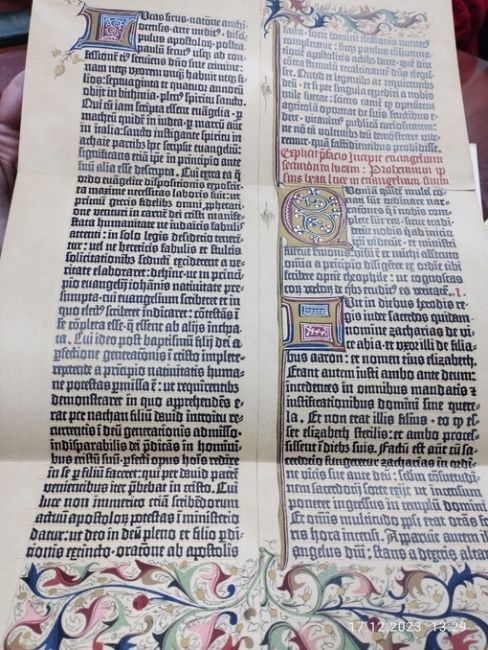 Lucas sirus·natiōne anthi-
ocensis·arte medic9·disci-
pulus apostoloꝝ·postea
paulū secut9 usq; ad con-
fessionē ei9 seruiens dūo sine crimine:
nam neq; vxorem unq̄ habuit neq; fi-
lios:septuaginta et quatuor annoꝝ
obijt in bithinia·plen9 spiritu sancto.
Qui cū iam scripta essent euāgelia·p̱
matheū quidē in iudea·p̱ marcū aūt
in italia:sancto instigante spiritu in
achaie partibs hoc scripsit euangeliū:
significans etiā ip̄e in principio ante
suū alia esse descripta. Cui extra ea q̄
ordo euāgelice dispositionis exposcit·
ea maxime necessitas laboris fuit:ut
primū grecis fidelibs omni prophetati-
one venturi in carnē dei cristi manife-
stata humanitate ne iudaicis fabulis
attenti:in solo legis desiderio teneren-
tur:vel ne hereticis fabulis et stultis
solicitationibs seducti exciderent a ve-
ritate elaboraret:dehinc·ut in princi-
pio euangelij iohānis natiuitate pre-
sumpta·cui euangelium scriberet et in
quo elect9 scriberet indicaret:cōtestās ī
se cōpleta esse·q̄ essent ab alijs inchoa-
ta. Cui ideo post baptismū filij dei a
p̱fectione generationis ī cristo implete·
repetende a principio natiuitatis huma-
ne potestas permissa ē:ut requirentibs
demonstraret in quo apprehendēs e-
rat per nathan filiū dauid introitu re-
currentis ī deū generationis admisso·
indisparabilis dei p̄dicās in homini-
bus cristū suū·p̱fecti opus hoīs redire
in se p̱ filiū faceret:qui per dauid patrē
venientibus iter p̄bebat in cristo. Cui
luce non immerito etiā scribēdorum
actuū apostoloꝝ potestas ī ministerio
datur:ut deo in deū pleno et filio p̱di-
tionis extincto·oratione ab apostolis
facta·sorte domini electionis numerus
compleretur:sicq; paulus consumma-
tionē apostolicis actibus daret·quē diu
contra stimulū recalcitrantē dn̄s elegis-
set. Quod et legentibs ac requirentibs
deū·et si per singula expediri a nobis
utile fuerat:sciens tamē q̄ operantem
agricolā oporteat de suis fructibus e-
dere·vitauim9 publicā curiositatem:
ne nō tā volentibs deū demonstrare vide-
remur·quā fastidientibus prodidisse.
Explicit p̄facio Incipit euangelium
secundum lucam: Prohemium ip-
sius beati luce in euangelium suum
Quoniā quidē multi co-
nati sunt ordinare nar-
rationes q̄ in nobis com-
plete sūt reꝝ·sicut tradi-
derūt nobis q̄ ab initio
ip̄i viderūt·et ministri
fuerūt sermonis:visū ē et michi assecuto
omīa a principio diligēter ex ordīe tibi
scribere optime theophile:ut cognoscas
eoꝝ verboꝝ de q̄bs erudit9 es veritatē. I.
Fuit in diebus herodis re-
gis iude sacerdos quidam
nomine zacharias de vi-
ce abia·et vxor illi de filia-
bus aaron:et nomen eius elizabeth.
Erant autem iusti ambo ante deum:
incedentes in omnibus mandatis et
iustificationibus domini sine quere-
la. Et non erat illis filius·eo q̄ es-
set elizabeth sterilis:et ambo proces-
sissent ī diebs suis. Factū est aūt cū sa-
cerdotio fungeretur zacharias in ordi-
ne vicis sue ante deū:scdm cōsuetudi-
nem sacerdotij sorte exijt ut incensum
poneret ingressus in templū domini.
Et omīs multitudo pp̄li erat orās fo-
ris hora incensi. Apparuit autem illi
angelus dn̄i:stans a dextris altaris
17.12.2023 13:29